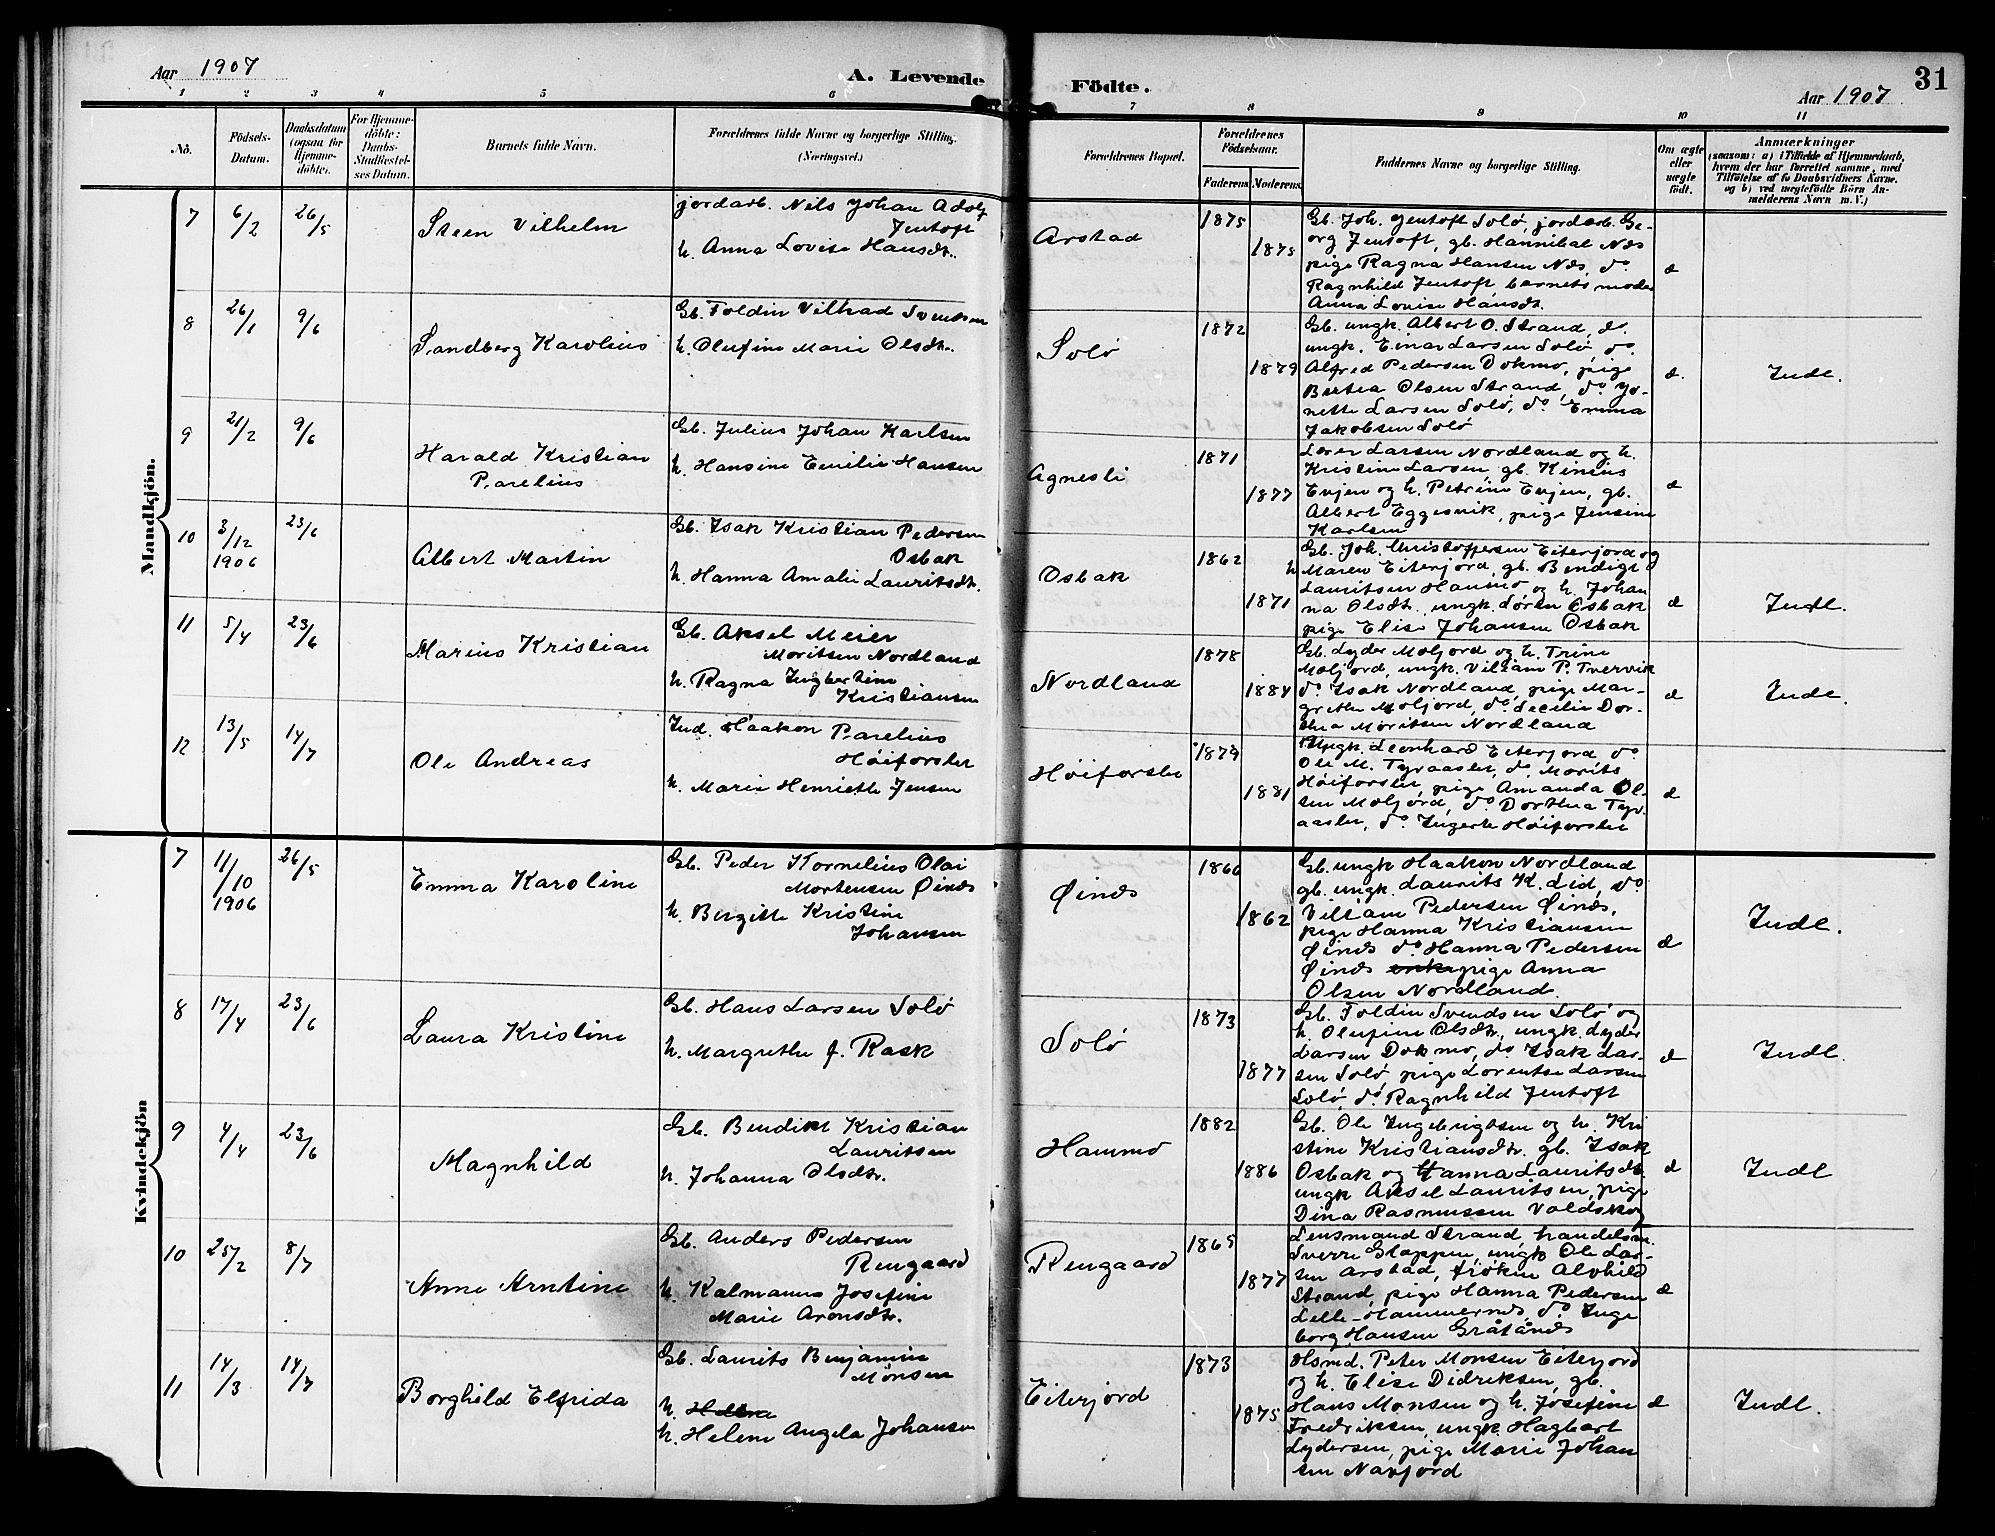 Aar 1907
A. Levende Födte.
Aar 1907
31
1 2 3 4 5 6 7 8 9 10 11
No.
Födsels-Datum.
Daabsdatum (ogsaa for Hjemme-döbte).
For Hjemme-döbte: Daabs-Stadfæstel-ses Datum.
Barnets fulde Navn.
Forældrenes fulde Navne og borgerlige Stilling. (Næringsvei.)
Forældrenes Bopæl.
Forældrenes Födselsaar.
Faderens. Moderens.
Faddernes Navne og borgerlige Stilling.
Om ægte eller uægte födt.
Anmærkninger
(saasom: a) i Tilfælde af Hjemmedaab,
hvem der har forrettet samme, med
Tilföielse af to Daabsvidners Navne.
og b) ved uægtefödte Börn An-
melderens Navn m. V.)
Mandkjön.
7 6/2 26/5 Steen Vilhelm
jordarb. Nils Johan Adolf
Jentoft
h. Anna Lovise Hansdtr.
Arstad
1875
1875
Gb. Joh. Jentoft Solø, jordarb. Ge-
org Jentoft, gb. Hannibal Næs
pige Ragna Hansen Næs, do
Ragnhild Jentoft, barnets moder
Anna Lovise Hansdtr.
æ
8 26/1 9/6 Sandberg Karolius
Gb. Foldin Vilhad Svendsen
h. Olufine Marie Olsdtr.
Solø
1872
1879
Gb. ungk. Albert O. Strand, do.
ungk. Einar Larsen Solø do.
Alfred Pedersen Dokmo, pige
Bertea Olsen Strand, do Jo-
nette Larsen Solø, do. Emma
Jakobsen Solø
æ.
Indl.
9 21/2 9/6 Harald Kristian
Parelius
Gb. Julius Johan Karlsen
h. Hansine Emilie Hansen
Agnesli
1871
1877
Lærer Larsen Nordland og h.
Kristine Larsen, gb. Kinius
Evjen og h. Petrine Evjen, gb.
Albert Eggesvik, pige Jensine
Karlsen
æ
10 3/12 1906 23/6 Albert Martin
Gb. Isak Kristian Pedersen
Osbak
h. Hanna Amalie Lauritsdtr.
Osbak
1862
1871
Gb. Joh. Christoffersen Eiterjord og
h Maren Eiterjord, gb. Bendigt
Lauritsen Hammø og h. Johan
na Olsdtr., ungk. Søren Osbak
pige Elise Johansen Osbak
æ
Indl.
11 5/4 23/6 Marius Kristian
Gb. Aksel Meier
Moritsen Nordland
h. Ragna Ingbertine
Kristiansen
Nordland
1878
1884
Gb. Lyder Moljord og h. Trine
Moljord, ungk. Viliam P. Tverrvik
do. Isak Nordland, pige Mar-
grethe Moljord, do. Cecilie Dor-
thea Moritsen Nordland
æ
Indl.
12 13/5 14/7 Ole Andreas
Ind. Haakon Parelius
Høiforslet
h. Marie Henriette Jensen
Høiforslet
1879
1881
Ungk. Leonhard Eiterjord do
Ole M. Tyvaaslet, do. Morits
Høiforslet, pige Amanda Ol-
sen Moljord, do. Dorthea Tyv-
aaslet, do. Ingerte Høiforslet
æ
Kvindekjön
7 11/10 1906 26/5 Emma Karoline
Gb. Peder Kornelius Olai
Mortensen Øines
h. Bergitte Kristine
Johansen
Øines
1860
1862
Gb. ungk Haakon Nordland
gb. ungk. Laurits K. Lid, do
Viliam Pedersen Øines,
pige Hanna Kristiansen
Øines do Hanna Pedersen
Øines enke pige Anna
Olsen Nordland
æ
Indl.
8 17/4 23/6 Laura Kristine
Gb. Hans Larsen Solø
h. Margrethe f. Rask
Solø
1873
1877
Gb. Foldin Svendsen Solø og
h. Olufine Olsdtr., ungk. Lyder
Larsen Dokmo, do Isak Lar-
sen Solø pige Lorentse Larsen
Solø, do. Ragnhild Jentoft
æ
Indl.
9 4/4 23/6 Magnhild
Gb. Bendikt Kristian
Lauritsen
h. Johanna Olsdtr.
Hammø
1882
1886
Gb. Ole Ingebrigtsen og h. Kri
stine Kristiansdtr. gb. Isak
Osbak og Hanna Lauritsdtr.
ungk Aksel Lauritsen, pige
Dina Rasmussen Valdskog
æ
Indl
10 25/2 8/7 Anne Arntine
Gb. Anders Pedersen
Rengaard
h. Kalmanna Josefine
Marie Aronsdtr.
Rengaard
1865
1877
Lensmand Strand, handelsm.
Sverre Gloppen, ungk Ole Lar-
sen Arstad, frøken Alvhild
Strand, pige Hanna Pedersen
Lille-Hammernes, do. Inge
borg Hansen Gråtånes
æ
11 14/3 14/7 Borghild Elfrida
Gb. Laurits Benjamin
Monsen
h. Helene
h. Helene Angela Johansen
Eiterjord
1873
1875
Hsmd. Peter Monsen Eiterjord
og h. Elise Didriksen, gb.
Hans Monsen og h. Josefine
Fredriksen, ungk Hagbart
Lydersen, pige Marie Johan
sen Navjord
æ
Indl.